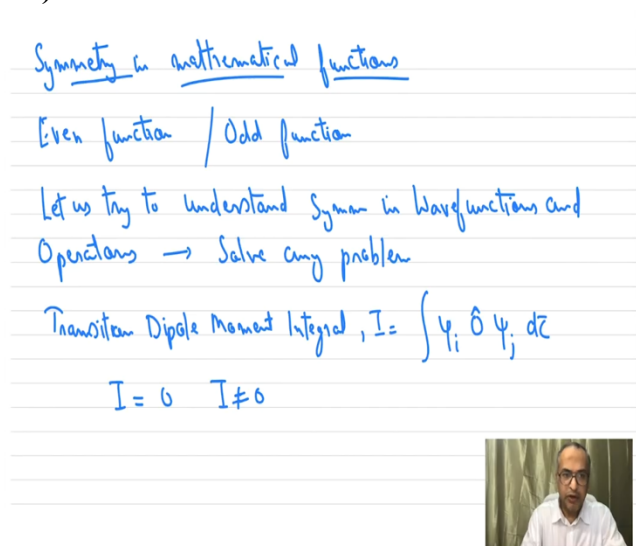 Symmetry in mathematical functions
Even function / Odd function
Let us try to understand Symm in Wavefunctions and
Operators → Solve any problem
Transition Dipole Moment Integral, I = ∫ ψi Ô ψj dτ
I = 0 I ≠ 0